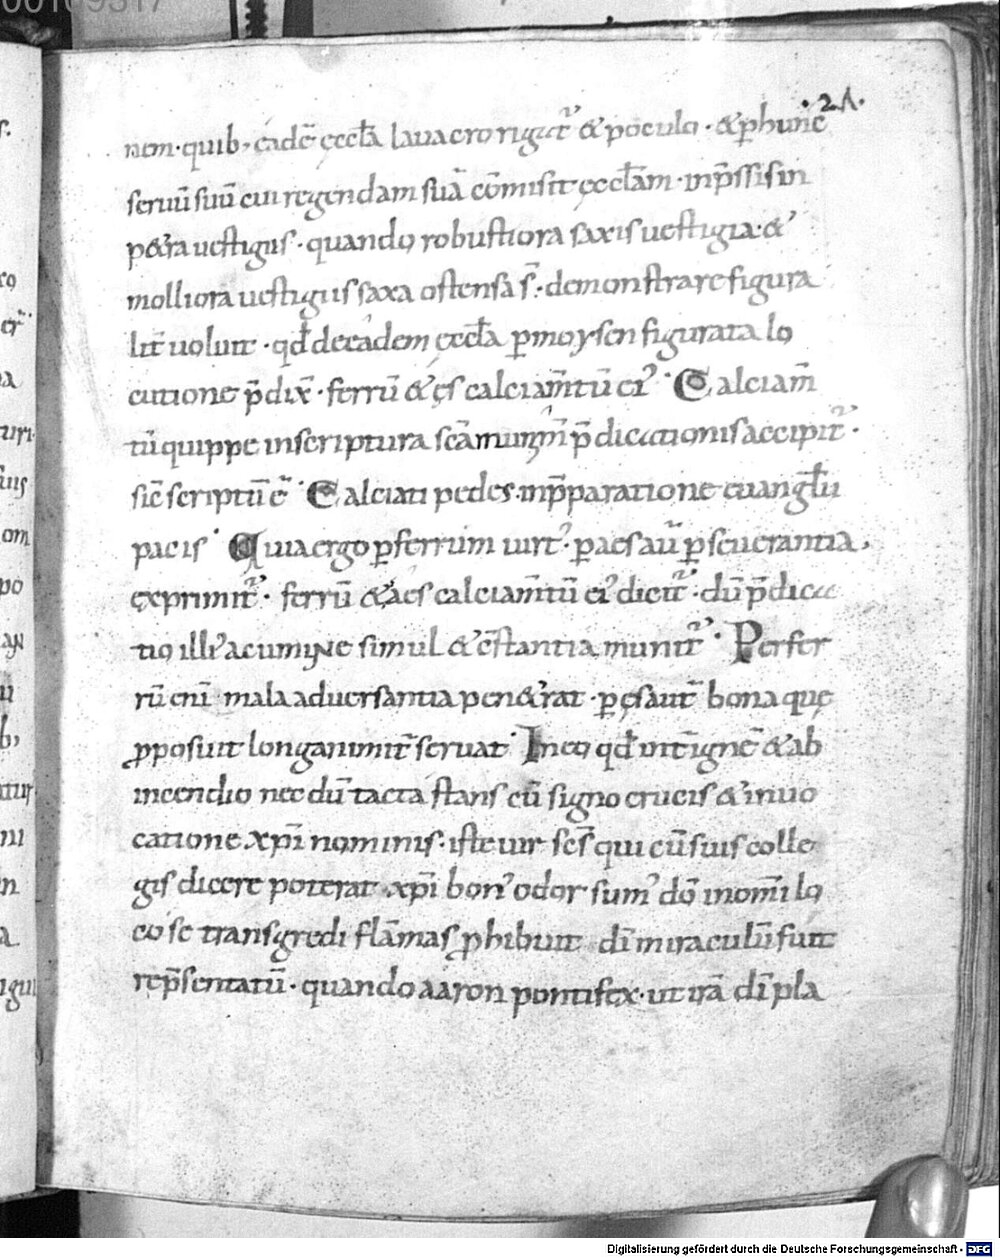 ·21·
nem·quib; eadē ęccła lauacro rigat᷑ & poculo·& p̱ hunc
seruū suū cui regendam suā cōmisit ęccłam·inp̄ssis in
p&ra uestigiis·quando robustiora saxis uestigia·&
molliora uestigiis saxa ostensa s̄·demonstrare figura
lit̄ uoluit·qd̄ de eadem ęccła p̱ moysen figurata lo
cutione p̄dix̄·ferrū & ęs calciam̄tū ei᾽ Calciam̄
tū quippe in scriptura sc̄a munim̄ p̄dicationis accipit᷑·
sic̄ scriptū ē Calciati pedes·inp̄paratione euangłii
pacis Quia ergo p̱ ferrum uirt᾽·p̱ aes aū p̱seuerantia,
exprimit᷑·ferrū & aes calciam̄tū ei᾽ dicit᷑·dū p̄dica
tio illi᾽ acumine simul & c̄stantia munit᷑· Per fer
rū eni̅ mala aduersantia pen&rat·p̱ ęs aut̄ bona quę
ꝓposuit longanimit̄ seruat In eo qd̄ int̄ ignē & ab
incendio necdū tacta stans cū signo crucis & inuo
catione xp̄i nominis·iste uir sc̄s qui cū suis colle
gis dicere poterat xp̄i bon᾽ odor sum᾽ dō inom̄i lo
co se transgredi flāmas ꝓhibuit di̅ miraculū fuit
rep̄sentatū·quando aaron pontifex·ut irā di̅ pla
00109317
Digitalisierung gefördert durch die Deutsche Forschungsgemeinschaft - DFG